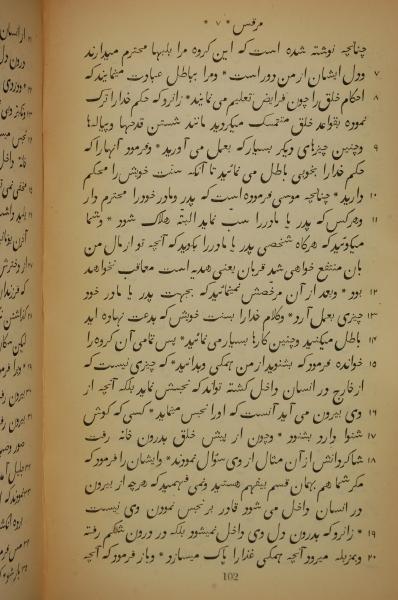 مرقس * ۷ *
چنانچه نوشته شده است که این کروه مرا بلبها محترم میدارند
۷ ودل ایشان از من دور است * ومرا بباطل عبادت مینمایند که
۸ احکام خلق را چون فرایض تعلیم می نمایند * زانرو که حکم خدارا ترک
نموده بقواعد خلق متمسک میکردید مانند شستن قدحها وپیاله‌ها
۹ وچنین چیزهای دیکر بسیار که بعمل می آورید * وفرمود آنها را که
حکم خدارا بخوبی باطل می نمائید تا آنکه سنت خویش را محکم
۱۰ دارید * چنانچه موسی فرموده است که پدر ومادر خودرا محترم دار
۱۱ وهرکس که پدر یا مادررا سب نماید البته هلاک شود * وشما
میکوئید که هرکاه شخصی پدر یا مادررا کوید که آنچه تو از مال من
بان منتفع خواهی شد قربان یعنی هدیه است معاقب نخواهد
۱۲ بود * وبعد از آن مرخصش نمینمائید که بجهت پدر یا مادر خود
۱۳ چیزی بعمل آرد * وکلام خدارا بسنت خویش که بدعت نهاده اید
۱۴ باطل میکنید وچنین کارها بسیار می نمائید * پس تمامی آن کروه را
۱۵ خوانده فرمود که بشنوید از من همکی وبدانید * که چیزی نیست که
از خارج در انسان داخل کشته تواند که نجسش نماید بلکه آنچه از
۱۶ وی بیرون می آید آنست که اورا نجس مینماید * کسی که کوش
۱۷ شنوا دارد بشنود * وچون از پیش خلق بدرون خانه رفت
۱۸ شاکردانش از آن مثال از وی سؤال نمودند * وایشان را فرمود که
مکر شما هم بهمان قسم بیفهم هستید ونمی فهمید که هرچه از بیرون
در انسان داخل می شود قادر بر نجس نمودن وی نیست
۱۹ * زانرو که بدرون دل وی داخل نمیشود بلکه در درون شکم رفته
۲۰ وبمزبله میرود آنچه همکی غذارا پاک میسازد * وباز فرمود که آنچه
102